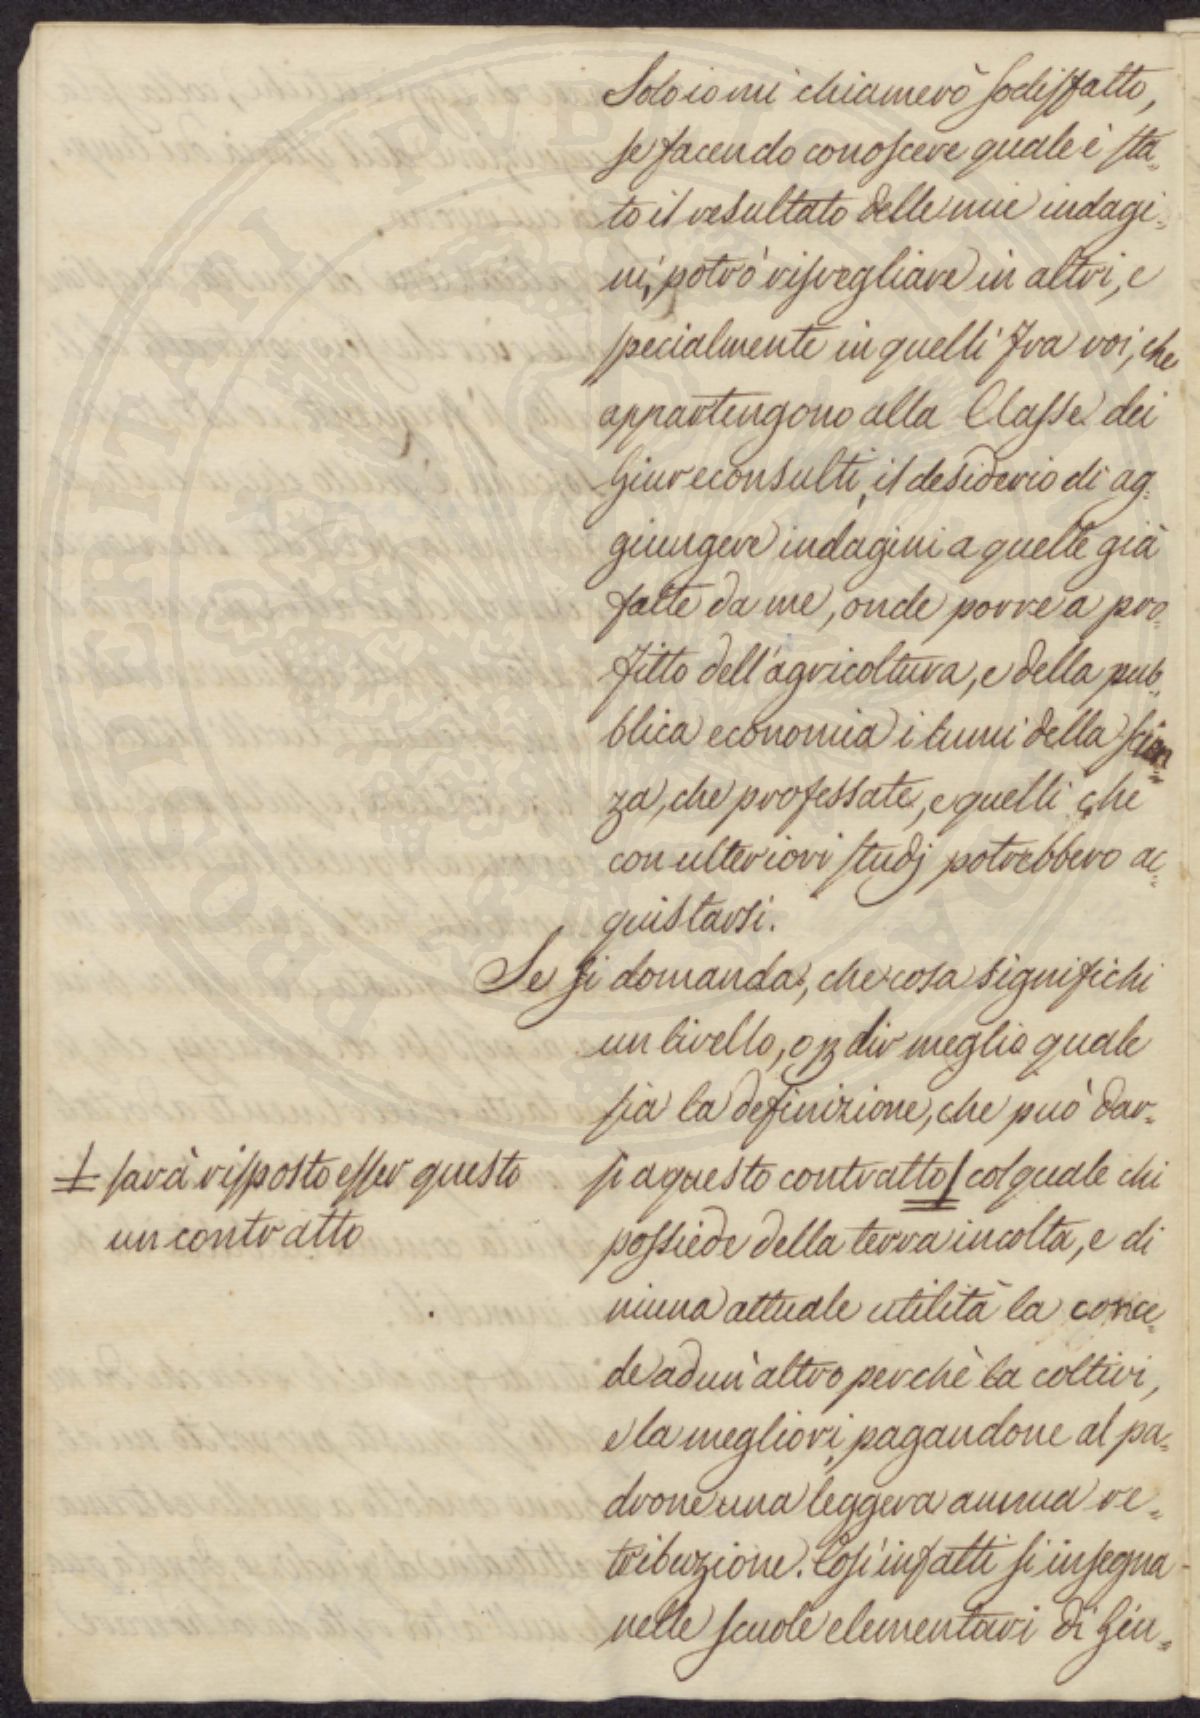 Solo io mi chiamerò sodisfatto,
se facendo conoscere quale è sta=
to il resultato delle mie indagi=
ni, potrò risvegliare in altri, e
specialmente in quelli fra voi, che
appartengono alla Classe dei
Giureconsulti, il desiderio di ag=
giungere indagini a quelle già
fatte da me, onde porre a pro=
fitto dell'agricoltura, e della pub=
blica economia i lumi della scien=
za, che professate, e quelli che
con ulteriori studj potrebbero ac=
quistarsi.
Se si domanda, che cosa significhi
un livello, o p dir meglio quale
sia la definizione, che può dar=
si a questo contratto/ col quale chi
possiede della terra incolta, e di
niuna attuale utilità la conce=
de ad un'altro perchè la coltivi,
e la megliori, pagandone al pa=
drone una leggera annua re=
tribuzione. Così infatti si insegna
nelle scuole elementari di Giu=
sarà risposto esser questo
un contratto
PROSPERITATI PUBLICAE